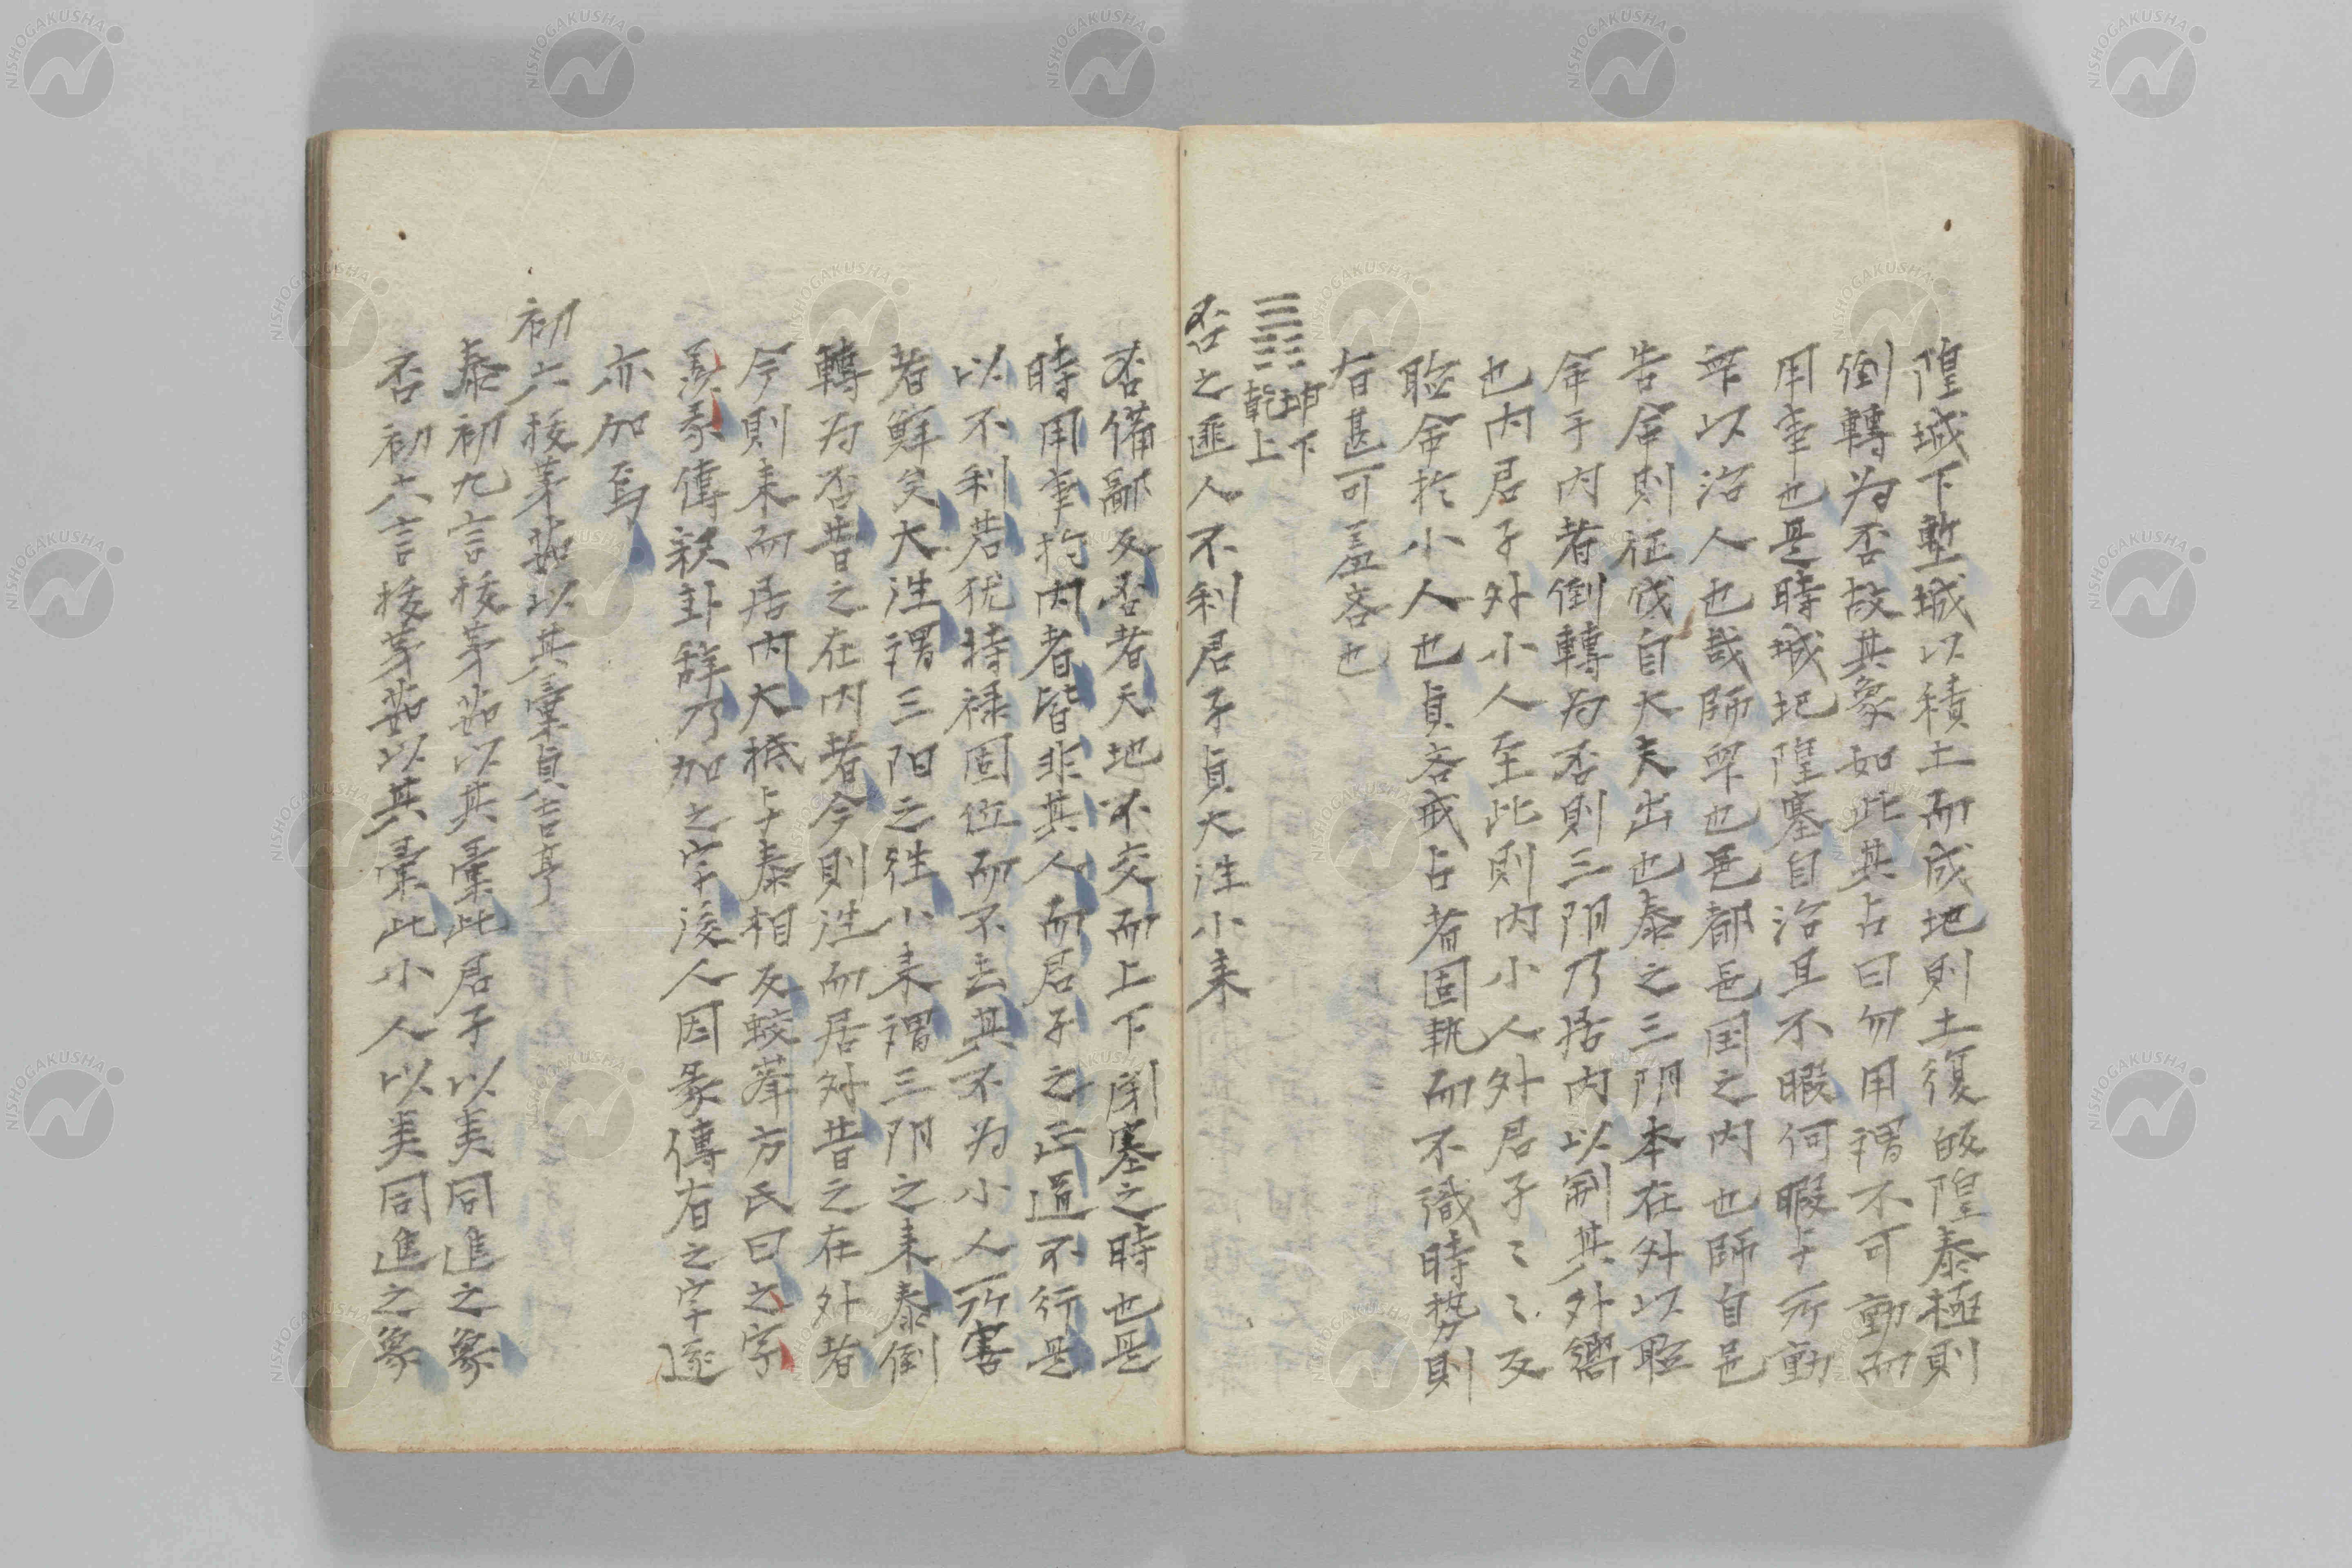 隍城下塹城以積土而成地則土復皈隍泰極則
倒轉為否故其象如此其占曰勿用謂不可動而
用事也是時城圮隍塞自治且不暇何暇与所動
衆以治人也哉師衆也邑都邑国之内也師自邑
告命則征伐自大夫出也泰之三阴本在外以聴
命于内者倒轉為否則三阴乃居内以制其外嚮
也内君子外小人至此則内小人外君子々々反
聴命於小人也貞吝戒占者固執而不識時势則
有甚可羞吝也
坤下
乾上
否之匪人不利君子貞大往小来
否備鄙反否者天地不交而上下閉塞之時也是
時用事於内者皆非其人而君子之正道不行是
以不利若犹恃禄固位而不去其不为小人所害
者鮮矣大往謂三阳之往小来謂三阴之来泰倒
轉为否昔之在内者今則往而居外昔之在外者
今則来而居内大抵与泰相反蛟峯方氏曰之字
羨彖傳釈卦辞乃加之字後人因彖傳有之字遂
亦加焉
初六拔茅茹以其彙貞吉亨
泰初九言拔茅茹以其彙此君子以类同進之象
否初六言拔茅茹以其彙此小人以类同進之象
NISHOGAKUSHA